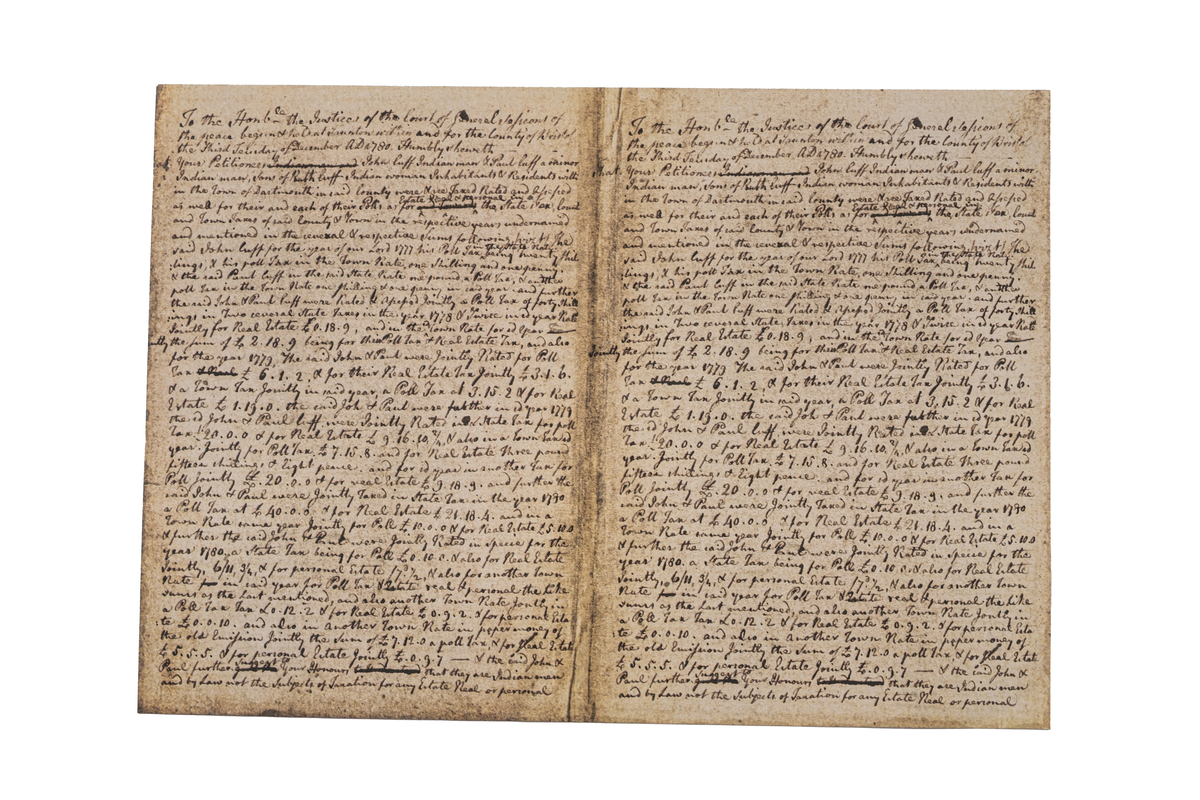 To the Honble the Justices of the Court of General Sessions of
the peace begun & held at Taunton within and for the County of Bristol
the Third Tuesday of December A.D. 1780. Humbly sheweth
Your Petitioners Indianmen John Cuff Indian man & Paul Cuff a minor
Indian man, Sons of Ruth Cuff Indian woman Inhabitants & Residents with
in the Town of Dartmouth in said County were Taxed Rated and Assessed
Estate Real & personal in
as well for their and each of their Polls as for the State Tax, Coun
and Town Taxes of said County & Town in the respective years undernamed
and mentioned in the several & respective Sums following viz. The
said John Cuff for the year of our Lord 1777 his Poll Tax in the State Rate being twenty Shil
lings, & his poll Tax in the Town Rate, one Shilling and one penny.
& the said Paul Cuff in the said State Rate one pound a Poll Tax, & another
poll Tax in the Town Rate one shilling & one penny, in said year. and further
the said John & Paul Cuff were Rated & Assessed Jointly a Poll Tax of forty Shill
ings, in Two several State Taxes in the year 1778 & Twice in said year Rate
Jointly for Real Estate £ 0.18.9, and in the Town Rate for sd year
the sum of £ 2.18.9 being for their Poll Tax & Real Estate Tax, and also
for the year 1779. The said John & Paul were Jointly Rated for Poll
Tax £ 6.1.2, & for their Real Estate Tax Jointly £ 3.1.6.
& a Town Tax Jointly in said year, a Poll Tax at 3.15.2 & for Real
Estate £ 1.19.0. the said Joh & Paul were further in sd year 1779
the sd John & Paul Cuff, were Jointly Rated in a State Tax for poll
Tax 20.0.0 & for Real Estate £ 9.16.10 ¾, & also in a Town Tax sd
year. Jointly for Poll Tax £ 7.15.8. and for Real Estate Three pound
fifteen shillings & Eight pence. and for sd year in another Tax for
Poll Jointly £ 20.0.0 & for real Estate £ 9.18.9. and further the
said John & Paul were Jointly Taxed in State Tax in the year 1780
a Poll Tax at £ 40.0.0 & for Real Estate £ 21.18.4. and in a
Town Rate same year Jointly for Poll £ 10.0.0 & for Real Estate £5.10.0
& further the said John & Paul were Jointly Rated in Specie for the
year 1780. a State Tax being for Poll £ 0.10.8. & also for Real Estate
Jointly, 6/11, ¾, & for personal Estate /7 ½, & also for another Town
Rate in said year for Poll Tax & Estate real & personal the like
sums as the Last mentioned, and also another Town Rate Jointly, in
a Poll Tax Tax £0.12.2 & for Real Estate £ 0.9.2. & for personal Esta
te £ 0.0.10. and also in another Town Rate in peper money of
the old Emission Jointly the Sum of £ 7.12.0 a poll Tax, & for Real Estate
£ 5.5.5. & for personal Estate Jointly £.0.9.7 — & the said John &
Paul further Suggest Your Honours that they are Indian men
and by Law not the Subjects of Taxation for any Estate Real or personal
To the Honble the Justices of the Court of General Sessions of
the peace begun & held at Taunton within and for the County of Bristol
the Third Tuesday of December A.D. 1780. Humbly sheweth
That Your Petitioners Indianmen John Cuff Indian man & Paul Cuff a minor
Indian man, Sons of Ruth Cuff Indian woman Inhabitants & Residents with
in the Town of Dartmouth in said County were Taxed Rated and Assessed
Estate Real & personal in
as well for their and each of their Polls as for the State Tax, Coun
and Town Taxes of said County & Town in the respective years undernamed
and mentioned in the several & respective Sums following viz. The
said John Cuff for the year of our Lord 1777 his Poll Tax in the State Rate being twenty Shil
lings, & his poll Tax in the Town Rate, one Shilling and one penny.
& the said Paul Cuff in the said State Rate one pound a Poll Tax, & another
poll Tax in the Town Rate one shilling & one penny, in said year. and further
the said John & Paul Cuff were Rated & Assessed Jointly a Poll Tax of forty Shill
ings, in Two several State Taxes in the year 1778 & Twice in said year Rate
Jointly for Real Estate £ 0.18.9, and in the Town Rate for sd year
Jointly the sum of £ 2.18.9 being for their Poll Tax & Real Estate Tax, and also
for the year 1779. The said John & Paul were Jointly Rated for Poll
Tax £ 6.1.2, & for their Real Estate Tax Jointly £ 3.1.6.
& a Town Tax Jointly in said year, a Poll Tax at 3.15.2 & for Real
Estate £ 1.19.0. the said Joh & Paul were further in sd year 1779
the sd John & Paul Cuff, were Jointly Rated in a State Tax for poll
Tax 20.0.0 & for Real Estate £ 9.16.10 ¾, & also in a Town Tax sd
year. Jointly for Poll Tax £ 7.15.8. and for Real Estate Three pound
fifteen shillings & Eight pence. and for sd year in another Tax for
Poll Jointly £ 20.0.0 & for real Estate £ 9.18.9. and further the
said John & Paul were Jointly Taxed in State Tax in the year 1780
a Poll Tax at £ 40.0.0 & for Real Estate £ 21.18.4. and in a
Town Rate same year Jointly for Poll £ 10.0.0 & for Real Estate £5.10.0
& further the said John & Paul were Jointly Rated in Specie for the
year 1780. a State Tax being for Poll £ 0.10.8. & also for Real Estate
Jointly, 6/11, ¾, & for personal Estate /7 ½, & also for another Town
Rate in said year for Poll Tax & Estate real & personal the like
sums as the Last mentioned, and also another Town Rate Jointly, in
a Poll Tax Tax £0.12.2 & for Real Estate £ 0.9.2. & for personal Esta
te £ 0.0.10. and also in another Town Rate in peper money of
the old Emission Jointly the Sum of £ 7.12.0 a poll Tax, & for Real Estat
£ 5.5.5. & for personal Estate Jointly £.0.9.7 — & the said John &
Paul further Suggest Your Honours that they are Indian men
and by Law not the Subjects of Taxation for any Estate Real or personal